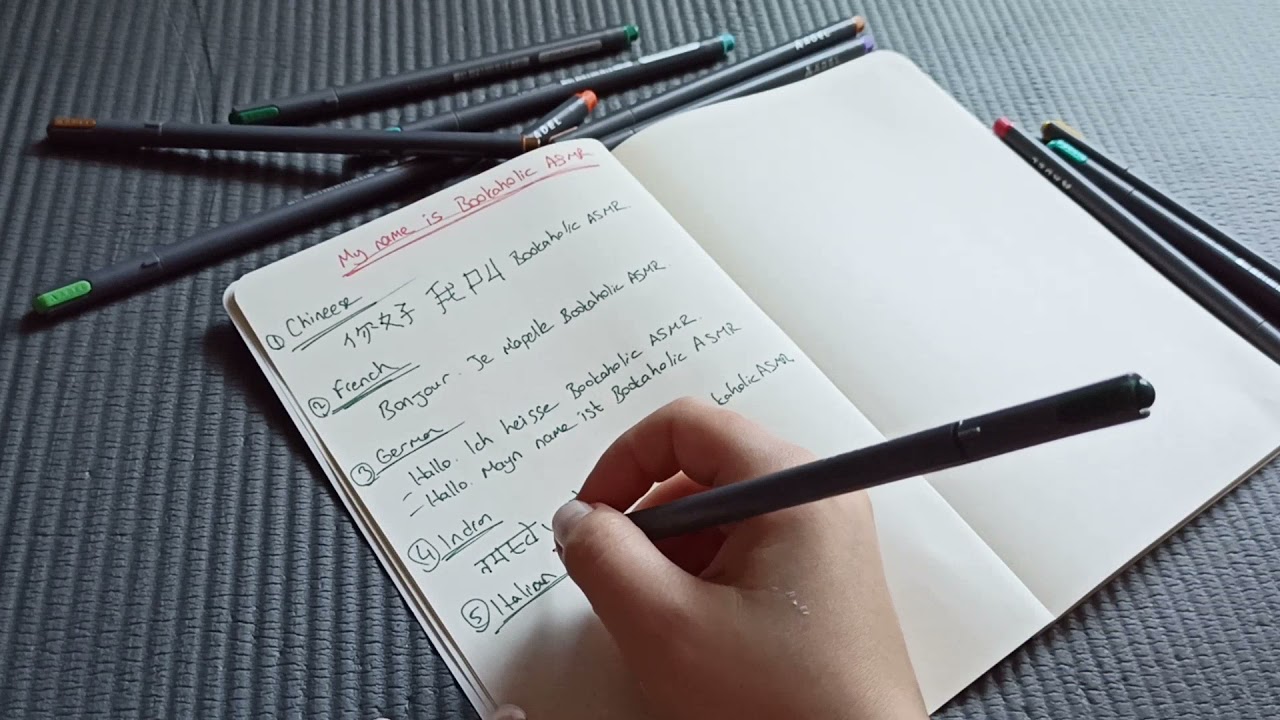 My name is Bookaholic ASMR
① Chineese
你好 我叫 Bookaholic ASMR
② French
Bonjour. Je Mapelle Bookaholic ASMR
③ German
Hallo. Ich heisse Bookaholic ASMR.
= Hallo. Mayn name ist Bookaholic ASMR
④ Indian
kaholic ASMR
⑤ Italian